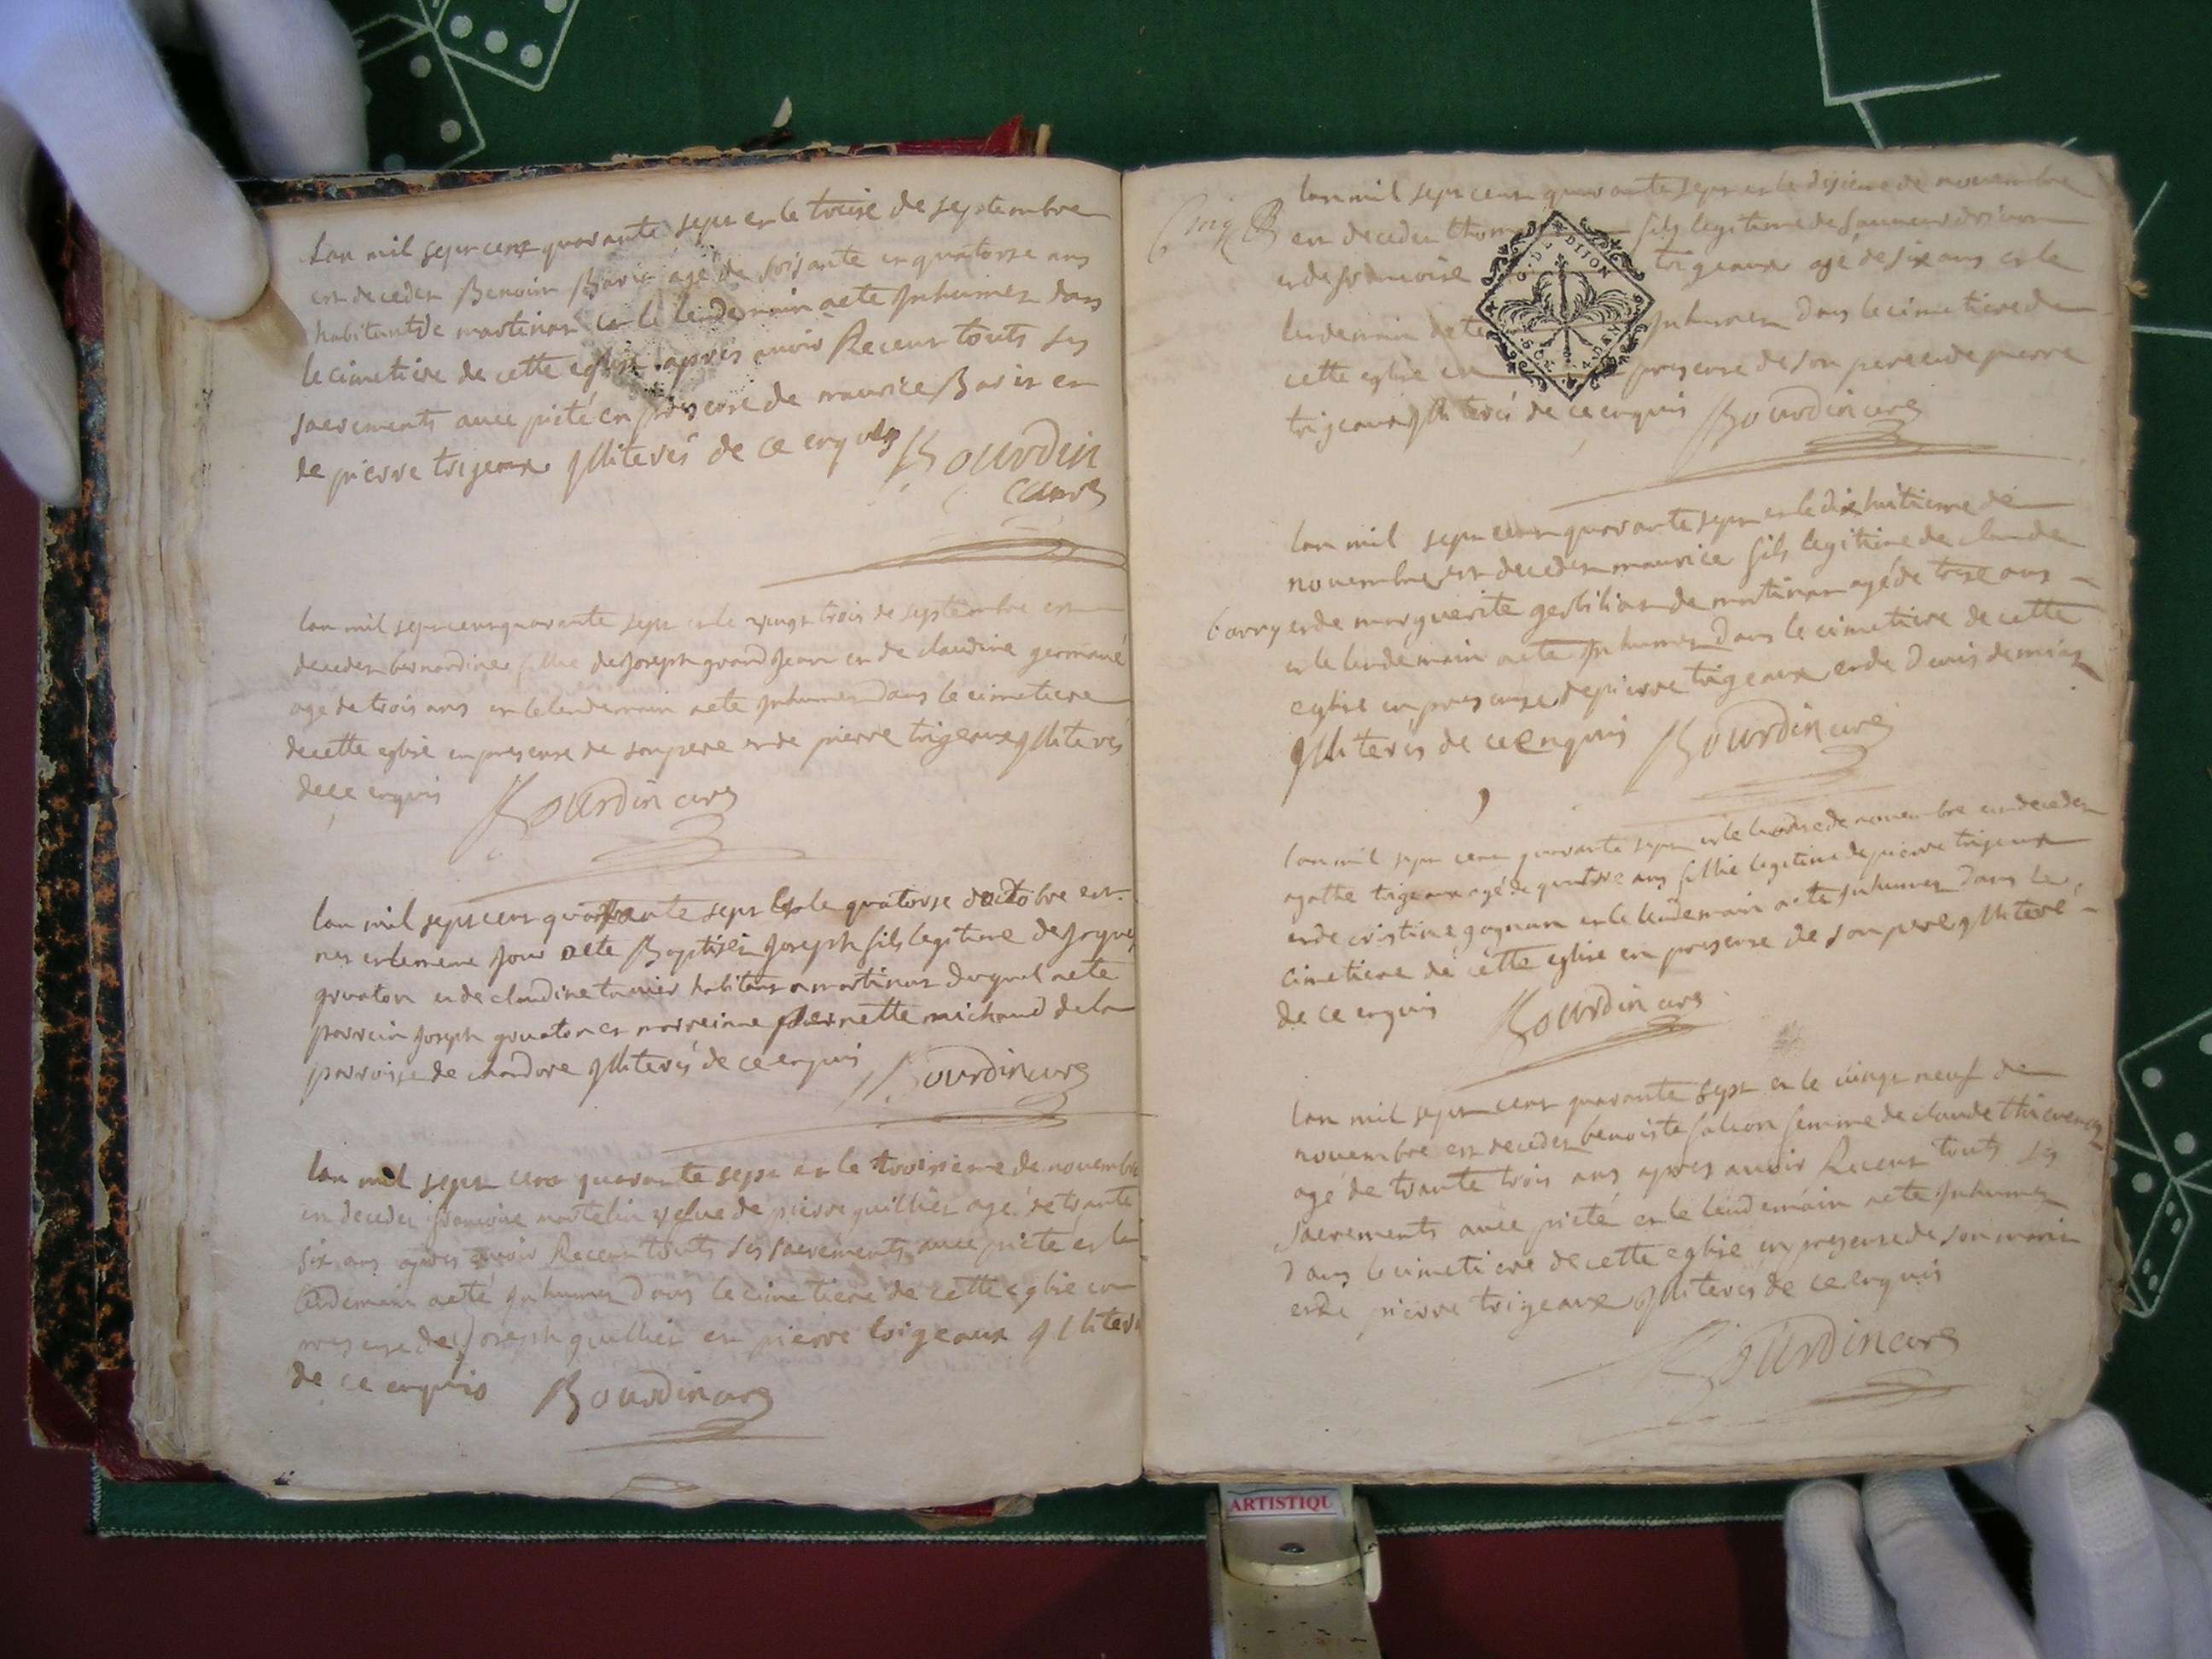 Lan mil sept cent quarante sept et le treise de septembre
est decedez Benoist Bavis agé de soisante et quatorse ans
habitant de martinas et le lendemain a ete Inhumez dans
le cimetiere de cette eglise apres avoir Receut touts ses
sacrements avec pieté en presense de maurice Bavis et
de pierre trigeaux Illiterés de ce enquis Bourdin
curé
lan mil sept cent quarante sept et le vingt trois de septembre est
decedez bernardine fillie de Joseph grand Jean et de claudine germane
agé de trois ans et le lendemain a ete Inhumez dans le cimetiere
de cette eglise en presense de son pere et de pierre trigeaux Illiterés
de ce enquis Bourdin curé
lan mil sept cent quarante sept et le quatorse doctobre est
nez et le meme Jour a ete Baptisez Joseph fils legitime de Jaques
gruaton et de claudine tavier habitans a martinas duquel a ete
parrein Joseph gruaton et marreinne pernette michaud de la
parroisse de chandore Illiterés de ce enquis Bourdin curé
lan mil sept cent quarante sept et le troisieme de novembre
est decedez francoise martelin vefue de pierre guillier agé de trante
six ans apres avoir Receut touts ses sacrements avec pieté et le
lendemain a eté Inhumez dans le cimetiere de cette eglise en
presense de Joseph guillier et pierre trigeaux Illiterés
de ce enquis Bourdin curé
lan mil sept cent quarante sept et le disieme de novembre
est decedez thomas fils legitime de
et de francoise trigeaux agé de six ans et le
lendemain a ete Inhumez dans le cimetiere de
cette eglise en presense de son pere et de pierre
trigeaux Illiterés de ce enquis Bourdin curé
G. D. DIJON
SOL
lan mil sept cent quarante sept et le dix huitieme de
novembre est decedez maurice fils legitime de claude
barry et de marguerite gerbilion de martinas agé de trese ans
et le lendemain a ete Inhumez dans le cimetiere de cette
eglise en presense de pierre trigeaux et de
Illiterés de ce enquis Bourdin curé
lan mil sept cent quarante sept et le de novembre est decedez
agathe trigeaux agé de quatre ans fillie legitime de pierre trigeaux
et de cristine gagnan et le lendemain a ete Inhumez dans le
cimetiere de cette eglise en presense de son pere Illiteré
de ce enquis Bourdin curé
lan mil sept cent quarante sept et le vingt neuf de
novembre est decedez benoiste falcon femme de claude
agé de trante trois ans apres avoir Receut touts ses
sacrements avec pieté et le lendemain a ete Inhumez
dans le cimetiere de cette eglise en presense de son maris
et de pierre trigeaux Illiterés de ce enquis
Bourdin curé
ARTISTIQU